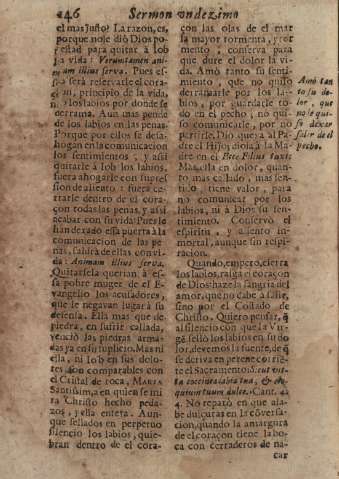 146 Sermon vndezimo
el mas justo? La razon, es,
porque no le diò Dios po-
testad para quitar à Iob
la vida: Veruntamen ani-
mam illius serva. Pues es-
so serà reservarle el cora-
çon, principio de la vida,
y los labios por donde se
derrama. Aun mas pende
de los labios en las penas.
Porque por ellos se desa-
hogan en la comunicacion
los sentimientos; y assi
quitarle à Iob los labios,
fuera ahogarle con supres-
sion de aliento: fuera en-
cerrarle dentro de el cora-
çon todas las penas, y assi
acabar con su vida: Pues le
han dexado essa puerta à la
comunicacion de las pe-
nas, saldrà de ellas con vi-
da: Animam illius serva.
Quitarsela querian à es-
sa pobre muger de el E-
vangelio los acusadores,
que le negavan lugar à su
defensa. Ella mas que de
piedra, en sufrir callada,
venciò las piedras arma-
das ya en su suplicio. Mas ni
ella, ni Iob en sus dolo-
res son comparables con
el Cristal de roca, MARIA
Santissima, en quien se mi-
ra Christo hecho peda-
zos, y ella entera. Aun-
que sellados en perpetuo
silencio los labios, quie-
bran dentro de el cora-
con las olas de el mar
sa mayor tormenta, y tor-
mento, conserva para
que dure el dolor la vi-
da. Amò tanto su senti-
miento, que no quiso
derramarle por los la-
bios, por guardarle to-
do en el pecho, no qui-
so comunicarle, por no
partirle. Diò quexa al Pa-
dre el Hijo; diola à la Ma-
dre en el Ecce Filius tuus:
Mas ella en dolor, quan-
to mas callado, mas sen-
tido, tiene valor, para
no comunicar por los
labios, ni à Dios su sen-
timiento. Conservò el
espiritu, y aliento in-
mortal, aunque sin respi-
racion.
Quando, empero, cierra
los labios, rasga el coraçon
de Dios: haze la sangria del
amor, que no cabe à salir,
sino por el Costado de
Christo. Quiero pensar, q
al silencio con que la Vir-
gẽ sellò los labios en su do-
lor, devemos la fuente, de q
se deriva en perenne corriẽ-
te el Sacramento: Sicut vit-
ta coccinea labia tua, & elo-
quium tuum dulce. (Cant. 4.)
4. No reparò en que ala-
be dulçuras en la cõversa-
cion, quando la amargura
de el coraçon tiene la bo-
ca con cerraderos de na-
car
Amò tan
to su do-
lor, que
no le qui-
so dexar
salir de el
pecho.